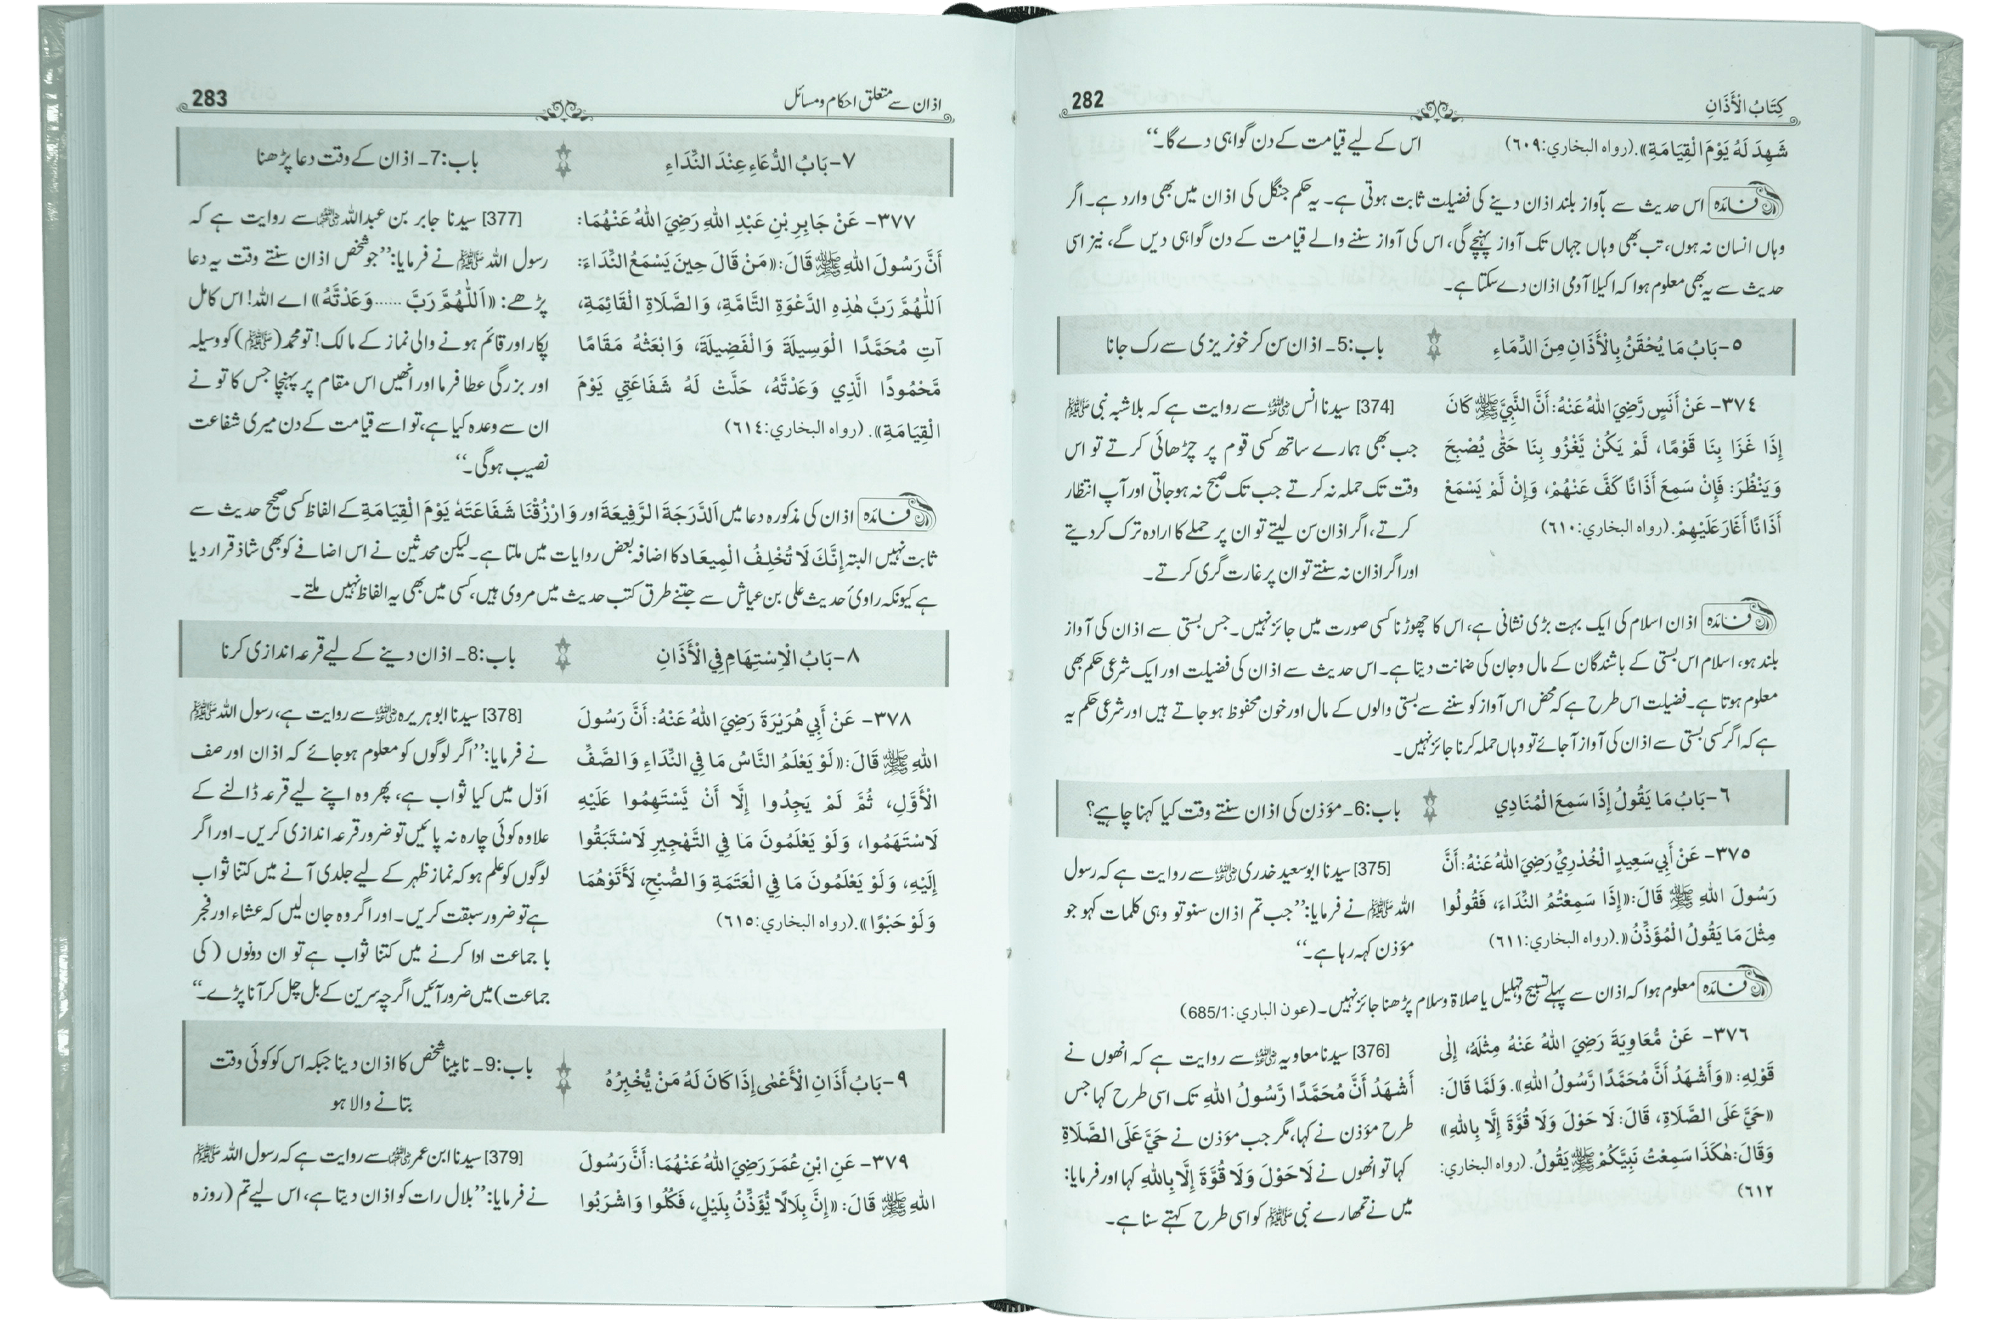 كِتَابُ الْأَذَانِ
282
شَهِدَ لَهُ يَوْمَ الْقِيَامَةِ». (رواه البخاري:٦٠٩)
اس کے لیے قیامت کے دن گواہی دے گا۔“
فائدہ اس حدیث سے بآواز بلند اذان دینے کی فضیلت ثابت ہوتی ہے۔ یہ حکم جنگل کی اذان میں بھی وارد ہے۔ اگر
وہاں انسان نہ ہوں، تب بھی وہاں جہاں تک آواز پہنچے گی، اس کی آواز سننے والے قیامت کے دن گواہی دیں گے، نیز اسی
حدیث سے یہ بھی معلوم ہوا کہ اکیلا آدمی اذان دے سکتا ہے۔
٥- بَابُ مَا يُحْقَنُ بِالْأَذَانِ مِنَ الدِّمَاءِ
باب:5۔ اذان سن کر خونریزی سے رک جانا
٣٧٤- عَنْ أَنَسٍ رَّضِيَ اللهُ عَنْهُ: أَنَّ النَّبِيَّ ﷺ كَانَ
إِذَا غَزَا بِنَا قَوْمًا، لَمْ يَكُنْ يَّغْزُو بِنَا حَتَّى يُصْبِحَ
وَيَنْظُرَ: فَإِنْ سَمِعَ أَذَانًا كَفَّ عَنْهُمْ، وَإِنْ لَّمْ يَسْمَعْ
أَذَانًا أَغَارَ عَلَيْهِمْ. (رواه البخاري:٦١٠)
[374] سیدنا انس ؓ سے روایت ہے کہ بلاشبہ نبی ﷺ
جب بھی ہمارے ساتھ کسی قوم پر چڑھائی کرتے تو اس
وقت تک حملہ نہ کرتے جب تک صبح نہ ہو جاتی اور آپ انتظار
کرتے، اگر اذان سن لیتے تو ان پر حملے کا ارادہ ترک کر دیتے
اور اگر اذان نہ سنتے تو ان پر غارت گری کرتے۔
فائدہ اذان اسلام کی ایک بہت بڑی نشانی ہے، اس کا چھوڑنا کسی صورت میں جائز نہیں۔ جس بستی سے اذان کی آواز
بلند ہو، اسلام اس بستی کے باشندگان کے مال و جان کی ضمانت دیتا ہے۔ اس حدیث سے اذان کی فضیلت اور ایک شرعی حکم بھی
معلوم ہوتا ہے۔ فضیلت اس طرح ہے کہ محض اس آواز کو سننے سے بستی والوں کے مال اور خون محفوظ ہو جاتے ہیں اور شرعی حکم یہ
ہے کہ اگر کسی بستی سے اذان کی آواز آ جائے تو وہاں حملہ کرنا جائز نہیں۔
٦- بَابُ مَا يَقُولُ إِذَا سَمِعَ الْمُنَادِي
باب:6۔ مؤذن کی اذان سنتے وقت کیا کہنا چاہیے؟
٣٧٥- عَنْ أَبِي سَعِيدٍ الْخُدْرِيِّ رَضِيَ اللهُ عَنْهُ: أَنَّ
رَسُولَ اللهِ ﷺ قَالَ: «إِذَا سَمِعْتُمُ النِّدَاءَ، فَقُولُوا
مِثْلَ مَا يَقُولُ الْمُؤَذِّنُ». (رواه البخاري:٦١١)
[375] سیدنا ابوسعید خدری ؓ سے روایت ہے کہ رسول
اللہ ﷺ نے فرمایا: ”جب تم اذان سنو تو وہی کلمات کہو جو
مؤذن کہہ رہا ہے۔“
فائدہ معلوم ہوا کہ اذان سے پہلے تسبیح و تہلیل یا صلاۃ و سلام پڑھنا جائز نہیں۔ (عون الباري:685/1)
٣٧٦- عَنْ مُّعَاوِيَةَ رَضِيَ اللهُ عَنْهُ مِثْلَهُ، إِلَى
قَوْلِهِ: «وَأَشْهَدُ أَنَّ مُحَمَّدًا رَّسُولُ اللهِ». وَلَمَّا قَالَ:
«حَيَّ عَلَى الصَّلَاةِ، قَالَ: لَا حَوْلَ وَلَا قُوَّةَ إِلَّا بِاللهِ»
وَقَالَ: هٰكَذَا سَمِعْتُ نَبِيَّكُمْ ﷺ يَقُولُ. (رواه البخاري:
٦١٢)
[376] سیدنا معاویہ ؓ سے روایت ہے کہ انھوں نے
أَشْهَدُ أَنَّ مُحَمَّدًا رَّسُولُ اللهِ تک اسی طرح کہا جس
طرح مؤذن نے کہا، مگر جب مؤذن نے حَيَّ عَلَى الصَّلَاةِ
کہا تو انھوں نے لَا حَوْلَ وَلَا قُوَّةَ إِلَّا بِاللهِ کہا اور فرمایا:
میں نے تمھارے نبی ﷺ کو اسی طرح کہتے سنا ہے۔
اذان سے متعلق احکام و مسائل
283
٧- بَابُ الدُّعَاءِ عِنْدَ النِّدَاءِ
باب:7۔ اذان کے وقت دعا پڑھنا
٣٧٧- عَنْ جَابِرِ بْنِ عَبْدِ اللهِ رَضِيَ اللهُ عَنْهُمَا:
أَنَّ رَسُولَ اللهِ ﷺ قَالَ: «مَنْ قَالَ حِينَ يَسْمَعُ النِّدَاءَ:
اَللّٰهُمَّ رَبَّ هٰذِهِ الدَّعْوَةِ التَّامَّةِ، وَالصَّلَاةِ الْقَائِمَةِ،
آتِ مُحَمَّدًا الْوَسِيلَةَ وَالْفَضِيلَةَ، وَابْعَثْهُ مَقَامًا
مَّحْمُودًا الَّذِي وَعَدْتَّهُ، حَلَّتْ لَهُ شَفَاعَتِي يَوْمَ
الْقِيَامَةِ». (رواه البخاري:٦١٤)
[377] سیدنا جابر بن عبداللہ ؓ سے روایت ہے کہ
رسول اللہ ﷺ نے فرمایا: ”جو شخص اذان سنتے وقت یہ دعا
پڑھے: «اَللّٰهُمَّ رَبَّ ...... وَعَدْتَّهُ» اے اللہ! اس کامل
پکار اور قائم ہونے والی نماز کے مالک! تو محمد (ﷺ) کو وسیلہ
اور بزرگی عطا فرما اور انھیں اس مقام پر پہنچا جس کا تو نے
ان سے وعدہ کیا ہے، تو اسے قیامت کے دن میری شفاعت
نصیب ہوگی۔“
فائدہ اذان کی مذکورہ دعا میں اَلدَّرَجَةَ الرَّفِيعَةَ اور وَارْزُقْنَا شَفَاعَتَهُ يَوْمَ الْقِيَامَةِ کے الفاظ کسی صحیح حدیث سے
ثابت نہیں البتہ إِنَّكَ لَا تُخْلِفُ الْمِيعَاد کا اضافہ بعض روایات میں ملتا ہے۔ لیکن محدثین نے اس اضافے کو بھی شاذ قرار دیا
ہے کیونکہ راویٔ حدیث علی بن عیاش سے جتنے طرق کتب حدیث میں مروی ہیں، کسی میں بھی یہ الفاظ نہیں ملتے۔
٨- بَابُ الْاِسْتِهَامِ فِي الْأَذَانِ
باب:8۔ اذان دینے کے لیے قرعہ اندازی کرنا
٣٧٨- عَنْ أَبِي هُرَيْرَةَ رَضِيَ اللهُ عَنْهُ: أَنَّ رَسُولَ
اللهِ ﷺ قَالَ: «لَوْ يَعْلَمُ النَّاسُ مَا فِي النِّدَاءِ وَالصَّفِّ
الْأَوَّلِ، ثُمَّ لَمْ يَجِدُوا إِلَّا أَنْ يَّسْتَهِمُوا عَلَيْهِ
لَاسْتَهَمُوا، وَلَوْ يَعْلَمُونَ مَا فِي التَّهْجِيرِ لَاسْتَبَقُوا
إِلَيْهِ، وَلَوْ يَعْلَمُونَ مَا فِي الْعَتَمَةِ وَالصُّبْحِ، لَأَتَوْهُمَا
وَلَوْ حَبْوًا». (رواه البخاري:٦١٥)
[378] سیدنا ابوہریرہ ؓ سے روایت ہے، رسول اللہ ﷺ
نے فرمایا: ”اگر لوگوں کو معلوم ہو جائے کہ اذان اور صف
اوّل میں کیا ثواب ہے، پھر وہ اپنے لیے قرعہ ڈالنے کے
علاوہ کوئی چارہ نہ پائیں تو ضرور قرعہ اندازی کریں۔ اور اگر
لوگوں کو علم ہو کہ نماز ظہر کے لیے جلدی آنے میں کتنا ثواب
ہے تو ضرور سبقت کریں۔ اور اگر وہ جان لیں کہ عشاء اور فجر
با جماعت ادا کرنے میں کتنا ثواب ہے تو ان دونوں (کی
جماعت) میں ضرور آئیں اگرچہ سرین کے بل چل کر آنا پڑے۔“
٩- بَابُ أَذَانِ الْأَعْمٰى إِذَا كَانَ لَهُ مَنْ يُّخْبِرُهُ
باب:9۔ نابینا شخص کا اذان دینا جبکہ اس کو کوئی وقت
بتانے والا ہو
٣٧٩- عَنِ ابْنِ عُمَرَ رَضِيَ اللهُ عَنْهُمَا: أَنَّ رَسُولَ
اللهِ ﷺ قَالَ: «إِنَّ بِلَالًا يُّؤَذِّنُ بِلَيْلٍ، فَكُلُوا وَاشْرَبُوا
[379] سیدنا ابن عمر ؓ سے روایت ہے کہ رسول اللہ ﷺ
نے فرمایا: ”بلال رات کو اذان دیتا ہے، اس لیے تم (روزہ